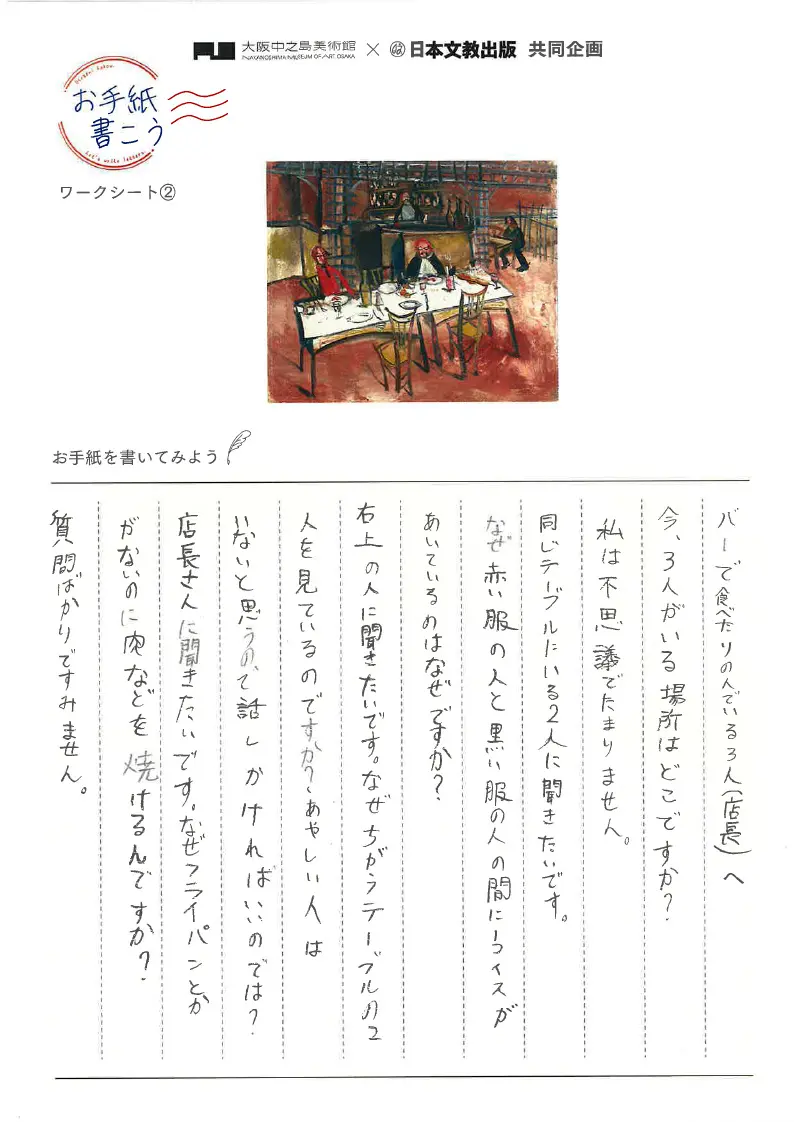 大阪中之島美術館
NAKANOSHIMA MUSEUM OF ART, OSAKA
×
日本文教出版 共同企画
お手紙
書こう
Let's write letters.
ワークシート②
お手紙を書いてみよう
バーで食べたりのんでいる3人(店長)へ
今、3人がいる場所はどこですか?
私は不思議でたまりません。
同じテーブルにいる2人に聞きたいです。
なぜ赤い服の人と黒い服の人の間に1コイスが
あいているのはなぜですか?
右上の人に聞きたいです。なぜちがうテーブルの2
人を見ているのですか?あやしい人は
いないと思うので話しかければいいのでは?
店長さんに聞きたいです。なぜフライパンとか
がないのに肉などを焼けるんですか?
質問ばかりですみません。